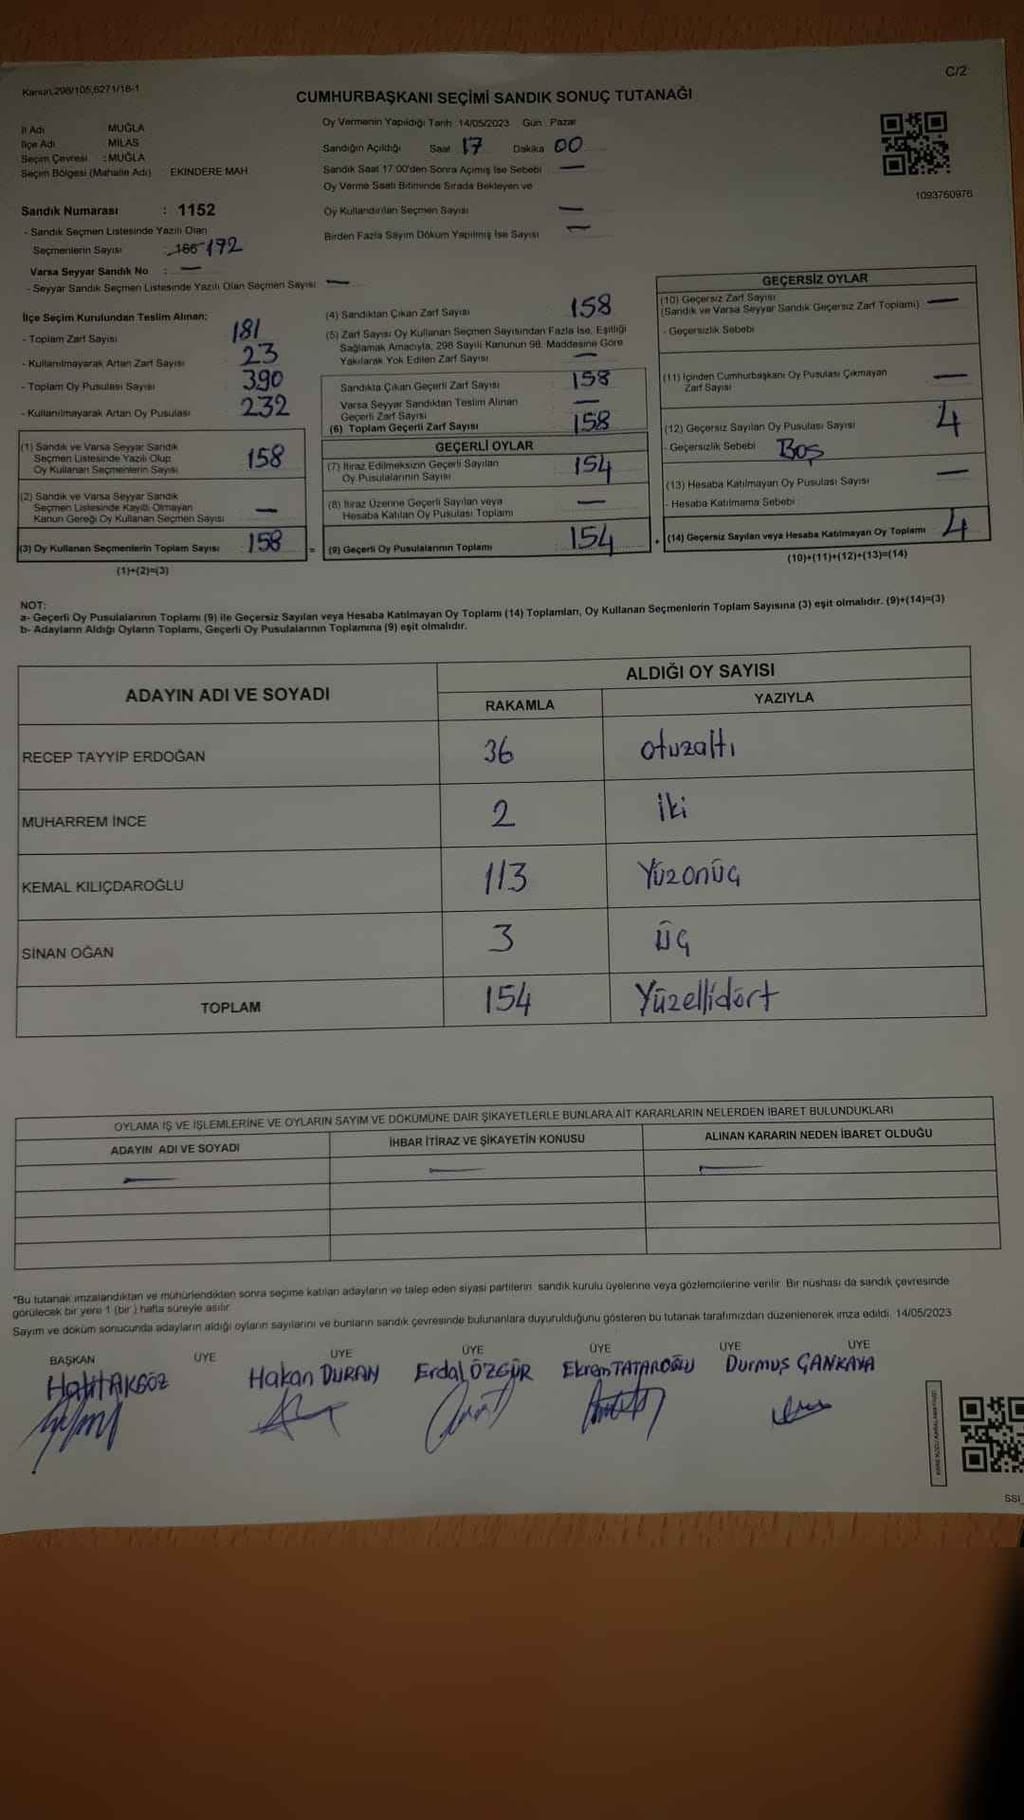 Kanun,298/105,6271/16-1
C/2
CUMHURBAŞKANI SEÇİMİ SANDIK SONUÇ TUTANAĞI
İl Adı MUĞLA
İlçe Adı MİLAS
Seçim Çevresi :MUĞLA
Seçim Bölgesi (Mahalle Adı) EKİNDERE MAH
Sandık Numarası : 1152
- Sandık Seçmen Listesinde Yazılı Olan
Seçmenlerin Sayısı : 166 192
Varsa Seyyar Sandık No : —
- Seyyar Sandık Seçmen Listesinde Yazılı Olan Seçmen Sayısı —
Oy Vermenin Yapıldığı Tarih 14/05/2023 Gün Pazar
Sandığın Açıldığı Saat 17 Dakika 00
Sandık Saat 17:00'den Sonra Açılmış İse Sebebi —
Oy Verme Saati Bitiminde Sırada Bekleyen ve
Oy Kullandırılan Seçmen Sayısı —
Birden Fazla Sayım Döküm Yapılmış İse Sayısı —
1093760976
İlçe Seçim Kurulundan Teslim Alınan:
- Toplam Zarf Sayısı 181
- Kullanılmayarak Artan Zarf Sayısı 23
- Toplam Oy Pusulası Sayısı 390
- Kullanılmayarak Artan Oy Pusulası 232
(1) Sandık ve Varsa Seyyar Sandık
Seçmen Listesinde Yazılı Olup
Oy Kullanan Seçmenlerin Sayısı 158
(2) Sandık ve Varsa Seyyar Sandık
Seçmen Listesinde Kayıtlı Olmayan
Kanun Gereği Oy Kullanan Seçmen Sayısı —
(3) Oy Kullanan Seçmenlerin Toplam Sayısı 158 =
(1)+(2)=(3)
(4) Sandıktan Çıkan Zarf Sayısı 158
(5) Zarf Sayısı Oy Kullanan Seçmen Sayısından Fazla İse, Eşitliği
Sağlamak Amacıyla, 298 Sayılı Kanunun 98. Maddesine Göre
Yakılarak Yok Edilen Zarf Sayısı —
Sandıkta Çıkan Geçerli Zarf Sayısı 158
Varsa Seyyar Sandıktan Teslim Alınan
Geçerli Zarf Sayısı —
(6) Toplam Geçerli Zarf Sayısı 158
GEÇERLİ OYLAR
(7) İtiraz Edilmeksizin Geçerli Sayılan
Oy Pusulalarının Sayısı 154
(8) İtiraz Üzerine Geçerli Sayılan veya
Hesaba Katılan Oy Pusulası Toplamı —
(9) Geçerli Oy Pusulalarının Toplamı 154
GEÇERSİZ OYLAR
(10) Geçersiz Zarf Sayısı
(Sandık ve Varsa Seyyar Sandık Geçersiz Zarf Toplamı) —
- Geçersizlik Sebebi
(11) İçinden Cumhurbaşkanı Oy Pusulası Çıkmayan
Zarf Sayısı —
(12) Geçersiz Sayılan Oy Pusulası Sayısı 4
- Geçersizlik Sebebi Boş
(13) Hesaba Katılmayan Oy Pusulası Sayısı —
- Hesaba Katılmama Sebebi
(14) Geçersiz Sayılan veya Hesaba Katılmayan Oy Toplamı 4
(10)+(11)+(12)+(13)=(14)
NOT:
a- Geçerli Oy Pusulalarının Toplamı (9) ile Geçersiz Sayılan veya Hesaba Katılmayan Oy Toplamı (14) Toplamları, Oy Kullanan Seçmenlerin Toplam Sayısına (3) eşit olmalıdır. (9)+(14)=(3)
b- Adayların Aldığı Oyların Toplamı, Geçerli Oy Pusulalarının Toplamına (9) eşit olmalıdır.
ADAYIN ADI VE SOYADI
ALDIĞI OY SAYISI
RAKAMLA YAZIYLA
RECEP TAYYİP ERDOĞAN 36 otuzaltı
MUHARREM İNCE 2 iki
KEMAL KILIÇDAROĞLU 113 Yüzonüç
SİNAN OĞAN 3 üç
TOPLAM 154 Yüzellidört
OYLAMA İŞ VE İŞLEMLERİNE VE OYLARIN SAYIM VE DÖKÜMÜNE DAİR ŞİKAYETLERLE BUNLARA AİT KARARLARIN NELERDEN İBARET BULUNDUKLARI
ADAYIN ADI VE SOYADI İHBAR İTİRAZ VE ŞİKAYETİN KONUSU ALINAN KARARIN NEDEN İBARET OLDUĞU
— — —
*Bu tutanak imzalandıktan ve mühürlendikten sonra seçime katılan adayların ve talep eden siyasi partilerin sandık kurulu üyelerine veya gözlemcilerine verilir. Bir nüshası da sandık çevresinde
görülecek bir yere 1 (bir ) hafta süreyle asılır.
Sayım ve döküm sonucunda adayların aldığı oyların sayılarını ve bunların sandık çevresinde bulunanlara duyurulduğunu gösteren bu tutanak tarafımızdan düzenlenerek imza edildi. 14/05/2023
BAŞKAN ÜYE ÜYE ÜYE ÜYE ÜYE ÜYE
Halit AKGÖZ Hakan DURAN Erdal ÖZGÜR Ekrem TATAROĞLU Durmuş ÇANKAYA
SSI